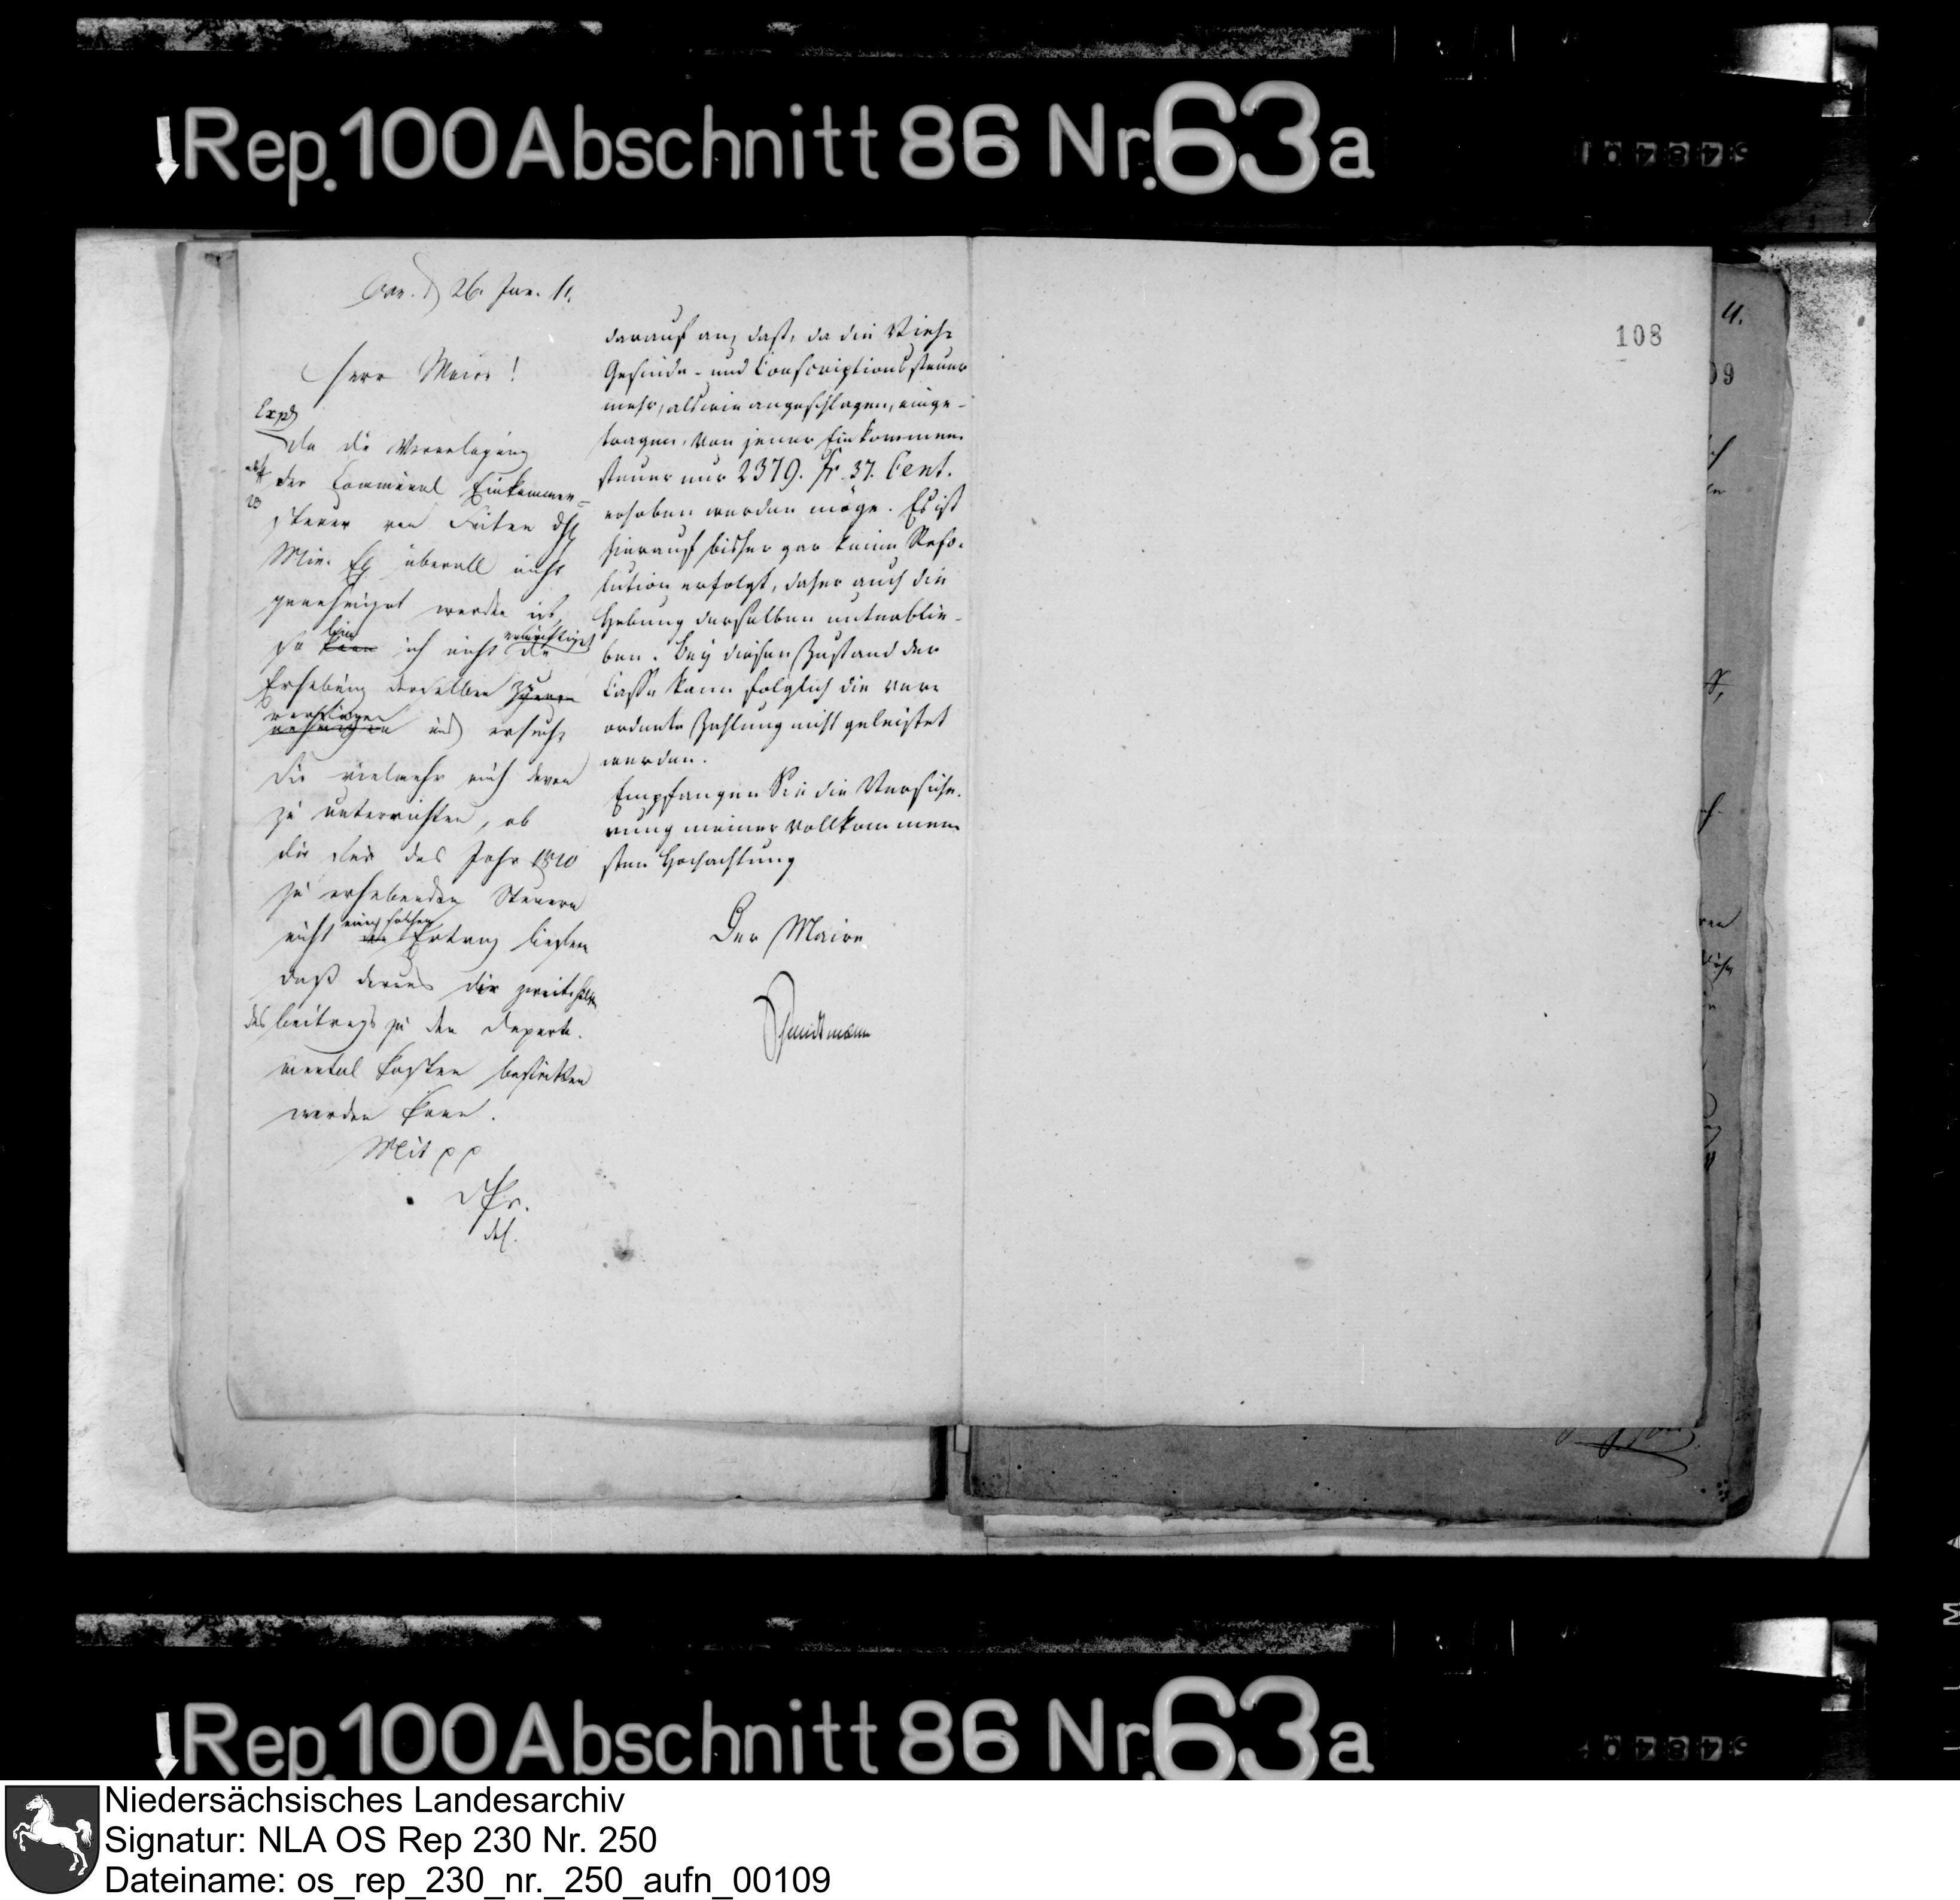 Rep. 100 Abschnitt 86 Nr. 63a
108
26. Jan. 11.
Herr Maire!
Exp
Da die Veranlagung
der Communal Einkommen=
steuer von Seiten
Min. überall nicht
genehmiget worden ist,
so bin ich nicht die
Erhebung derselben zu
verfügen und ersuche
Sie vielmehr mich davon
zu unterrichten, ob
die das Jahr 1810
zu erhebenden Steuern
nicht einen solchen Ertrag liefern
daß daraus die zweite Hälfte
des Beitrags zu den Departe-
mental Kosten bestritten
werden kann.
Mit pp
darauf an, daß, da die Vieh-
Gesinde- und Conscriptionssteuer
mehr, als wie angeschlagen, einge-
tragen, von jener Einkommen-
steuer nur 2379. Fr. 37. Cent.
erhoben werden möge. Es ist
hierauf bisher gar keine Reso-
lution erfolgt, daher auch die
Hebung derselben unterblie-
ben. Bey diesen Zustand der
Casse kann folglich die ver-
ordnete Zahlung nicht geleistet
werden.
Empfangen Sie die Versiche-
rung meiner vollkommen-
sten Hochachtung
Der Maire
Rep. 100 Abschnitt 86 Nr. 63a
Niedersächsisches Landesarchiv
Signatur: NLA OS Rep 230 Nr. 250
Dateiname: os_rep_230_nr._250_aufn_00109